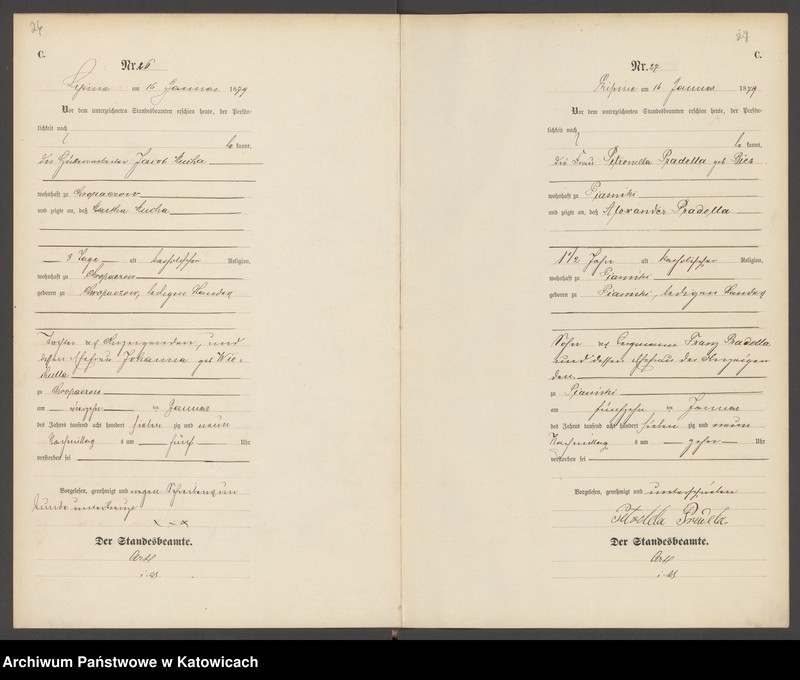 26
C.
Nr. 26
Lipine am 16 Januar 1879
Vor dem unterzeichneten Standesbeamten erschien heute, der Persön-
lichkeit nach
be kannt,
der Hüttenarbeiter Jacob
wohnhaft zu Chropaczow
und zeigte an, daß
3 Tage alt katholischer Religion,
wohnhaft zu Chropaczow
geboren zu Chropaczow, ledigen Standes
Tochter des Anzeigenden, und
dessen Ehefrau Johanna geb
zu Chropaczow
am vierzehn ten Januar
des Jahres tausend acht hundert sieben zig und neun
Nachmittag s um fünf Uhr
verstorben sei
Vorgelesen, genehmigt und wegen Schreibensun
kunde unterkreuzt
Der Standesbeamte.
27
C.
Nr. 27
Lipine am 16 Januar 1879
Vor dem unterzeichneten Standesbeamten erschien heute, der Persön-
lichkeit nach
be kannt,
die Frau Petronella Pradella geb
wohnhaft zu Piasniki
und zeigte an, daß Alexander Pradella
1 1/2 Jahr alt katholischer Religion,
wohnhaft zu Piasniki
geboren zu Piasniki, ledigen Standes
Sohn des Bergmanns Franz Pradella
und dessen Ehefrau der Anzeigen
den
zu Piasniki
am fünfzehn ten Januar
des Jahres tausend acht hundert sieben zig und neun
Nachmittag s um zehn Uhr
verstorben sei
Vorgelesen, genehmigt und unterschrieben
Der Standesbeamte.
Archiwum Państwowe w Katowicach